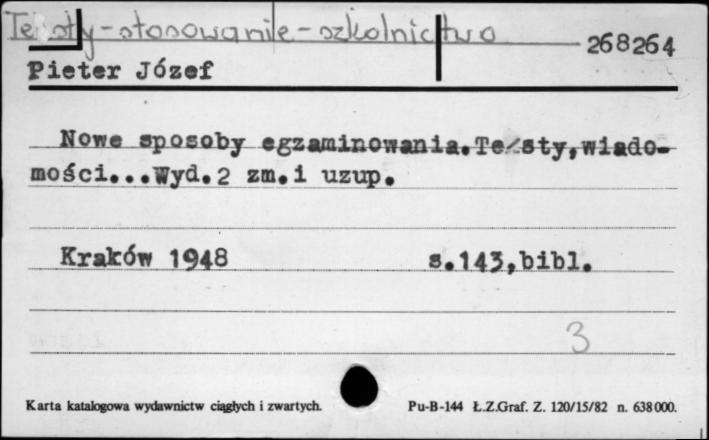 Testy - stosowanie - szkolnictwo
268264
Pieter Józef
Nowe sposoby egzaminowania.Testy,wiado-
mości...Wyd.2 zm.i uzup.
Kraków 1948 s.143,bibl.
3
Karta katalogowa wydawnictw ciągłych i zwartych. Pu-B-144 Ł.Z.Graf. Z. 120/15/82 n. 638000.